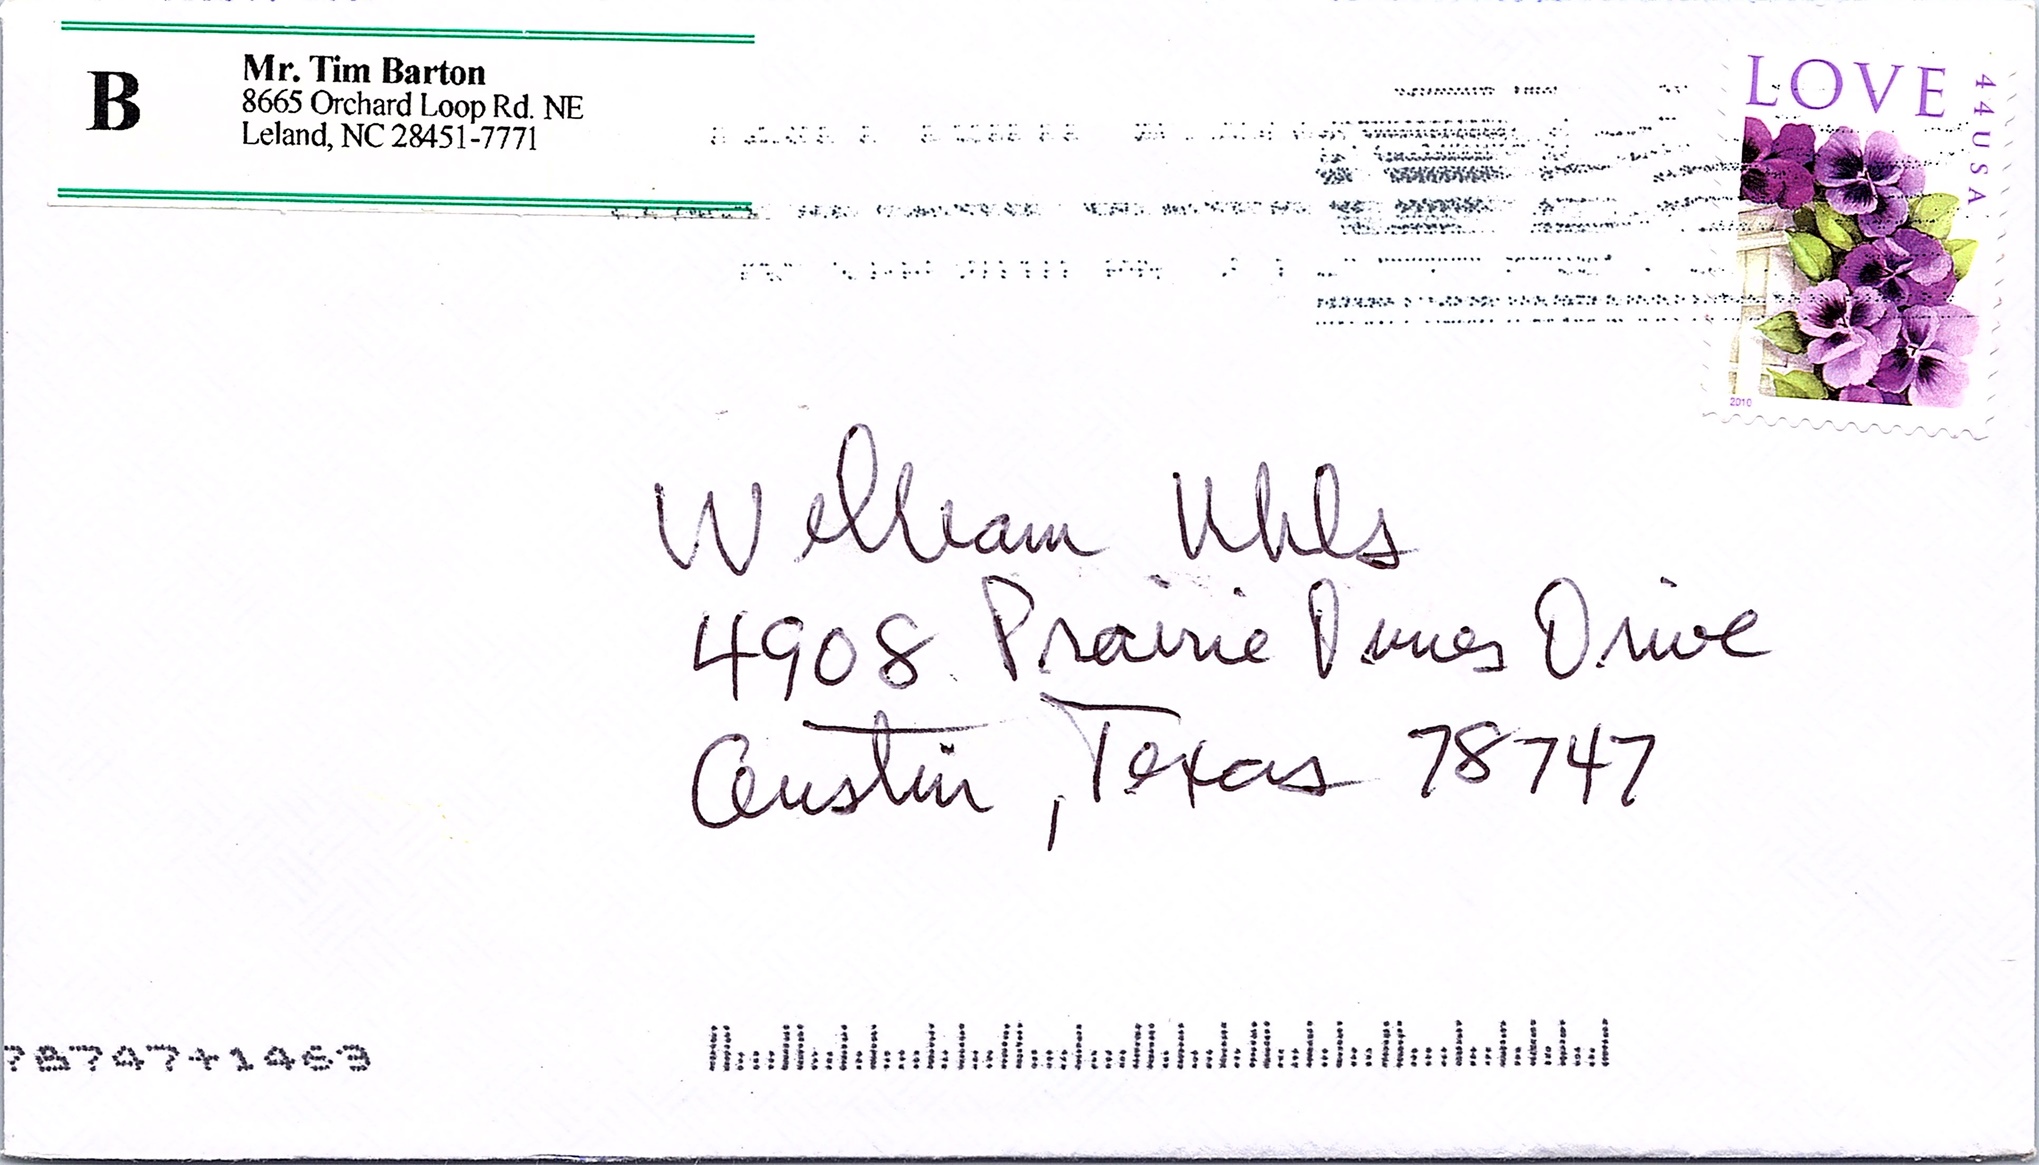 B
Mr. Tim Barton
8665 Orchard Loop Rd. NE
Leland, NC 28451-7771
LOVE
44USA
2010
William Uhls
4908 Prairie Dunes Drive
Austin, Texas 78747
78747+1463